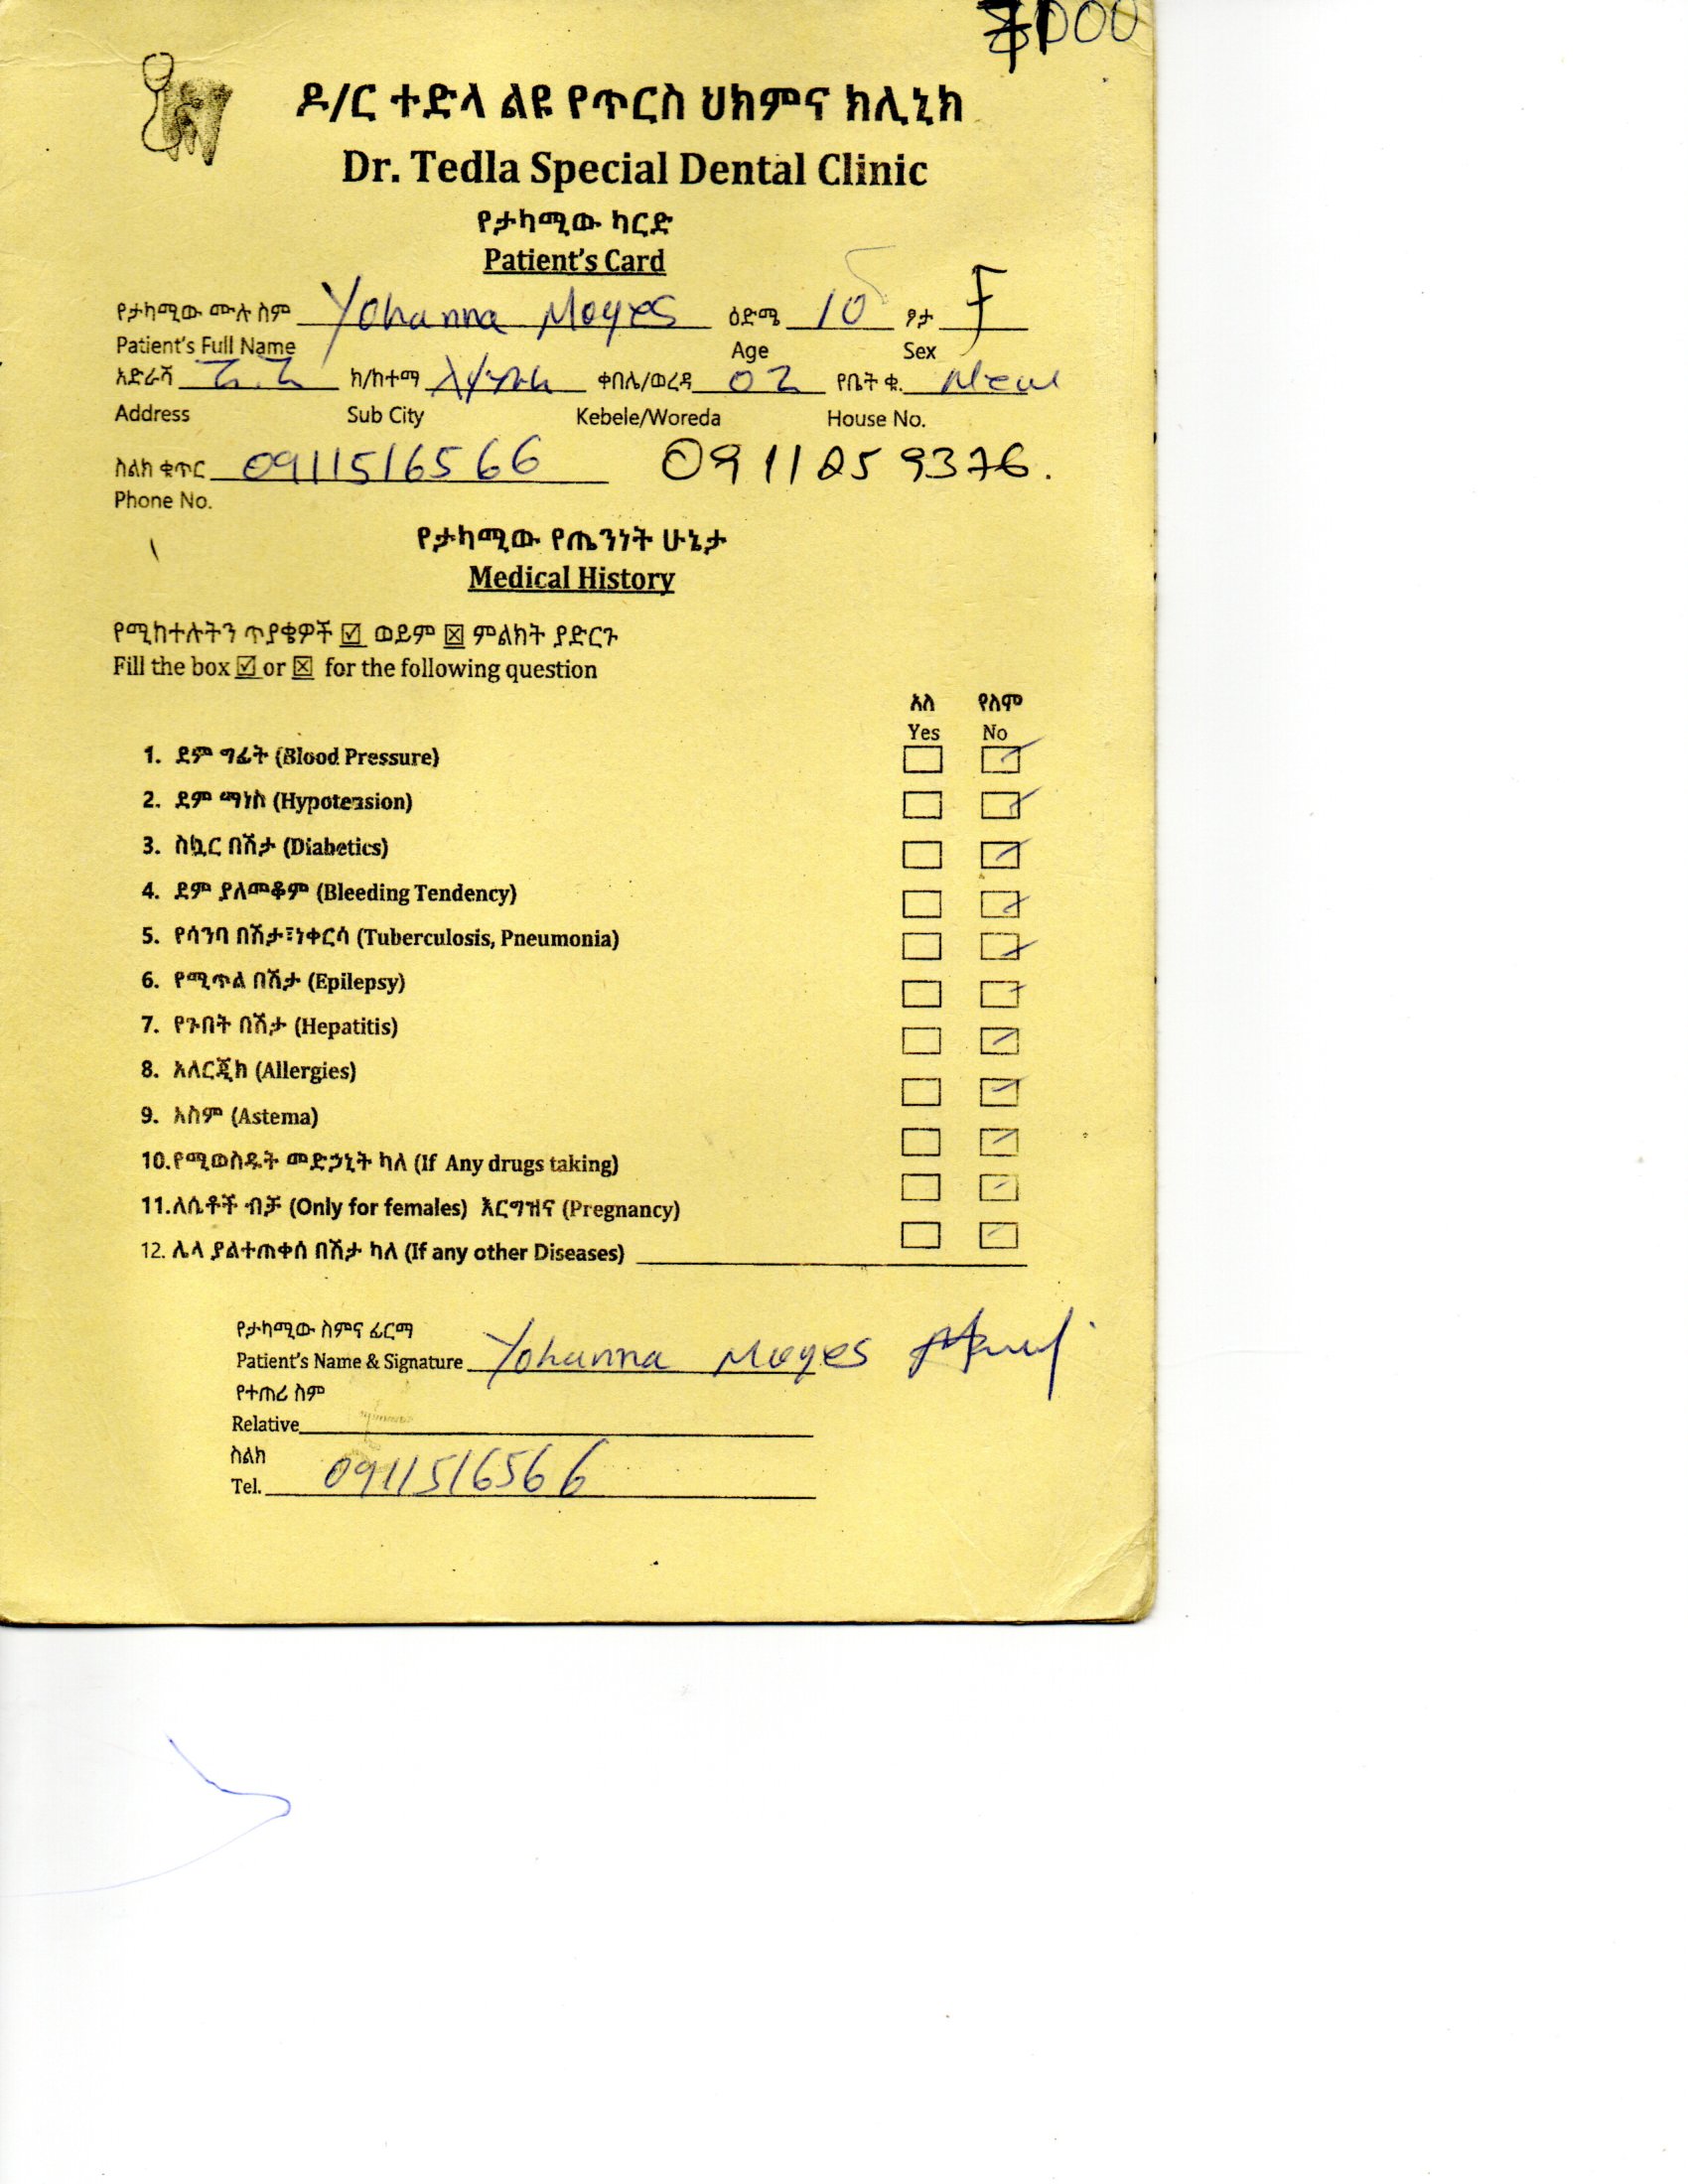 ዶ/ር ተድላ ልዩ የጥርስ ህክምና ክሊኒክ
Dr. Tedla Special Dental Clinic
የታካሚው ካርድ
Patient's Card
የታካሚው ሙሉ ስም Yohanna Moges ዕድሜ 10 ፆታ F
Patient's Full Name Age Sex
አድራሻ ክ/ከተማ ቀበሌ/ወረዳ 02 የቤት ቁ. New
Address Sub City Kebele/Woreda House No.
ስልክ ቁጥር 0911516566 0911259376.
Phone No.
የታካሚው የጤንነት ሁኔታ
Medical History
የሚከተሉትን ጥያቄዎች ☑ ወይም ☒ ምልክት ያድርጉ
Fill the box ☑ or ☒ for the following question
አለ የለም
Yes No
1. ደም ግፊት (Blood Pressure)
2. ደም ማነስ (Hypotension)
3. ስኳር በሽታ (Diabetics)
4. ደም ያለመቆም (Bleeding Tendency)
5. የሳንባ በሽታ፣ነቀርሳ (Tuberculosis, Pneumonia)
6. የሚጥል በሽታ (Epilepsy)
7. የጉበት በሽታ (Hepatitis)
8. አለርጂክ (Allergies)
9. አስም (Astema)
10.የሚወስዱት መድኃኒት ካለ (If Any drugs taking)
11.ለሴቶች ብቻ (Only for females) እርግዝና (Pregnancy)
12. ሌላ ያልተጠቀሰ በሽታ ካለ (If any other Diseases)
የታካሚው ስምና ፊርማ
Patient's Name & Signature Yohanna Moges
የተጠሪ ስም
Relative
ስልክ
Tel. 0911516566